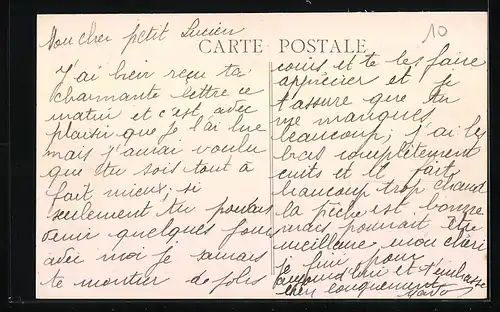 Mon cher petit Lucien
CARTE POSTALE
10
J'ai bien reçu ta
charmante lettre ce
matin et c'est avec
plaisir que je l'ai lue
mais j'aurai voulu
que tu sois tout à
fait mieux; si
seulement tu pouvais
venir quelques jours
avec moi je saurais
te montrer de jolis
coins et te les faire
apprécier et je
t'assure que tu
me manques
beaucoup; j'ai les
bras complètement
cuits et il fait
beaucoup trop chaud
la pêche est bonne
mais pourrait être
meilleure, mon chéri
je finis pour
aujourd'hui et t'embrasse
bien longuement